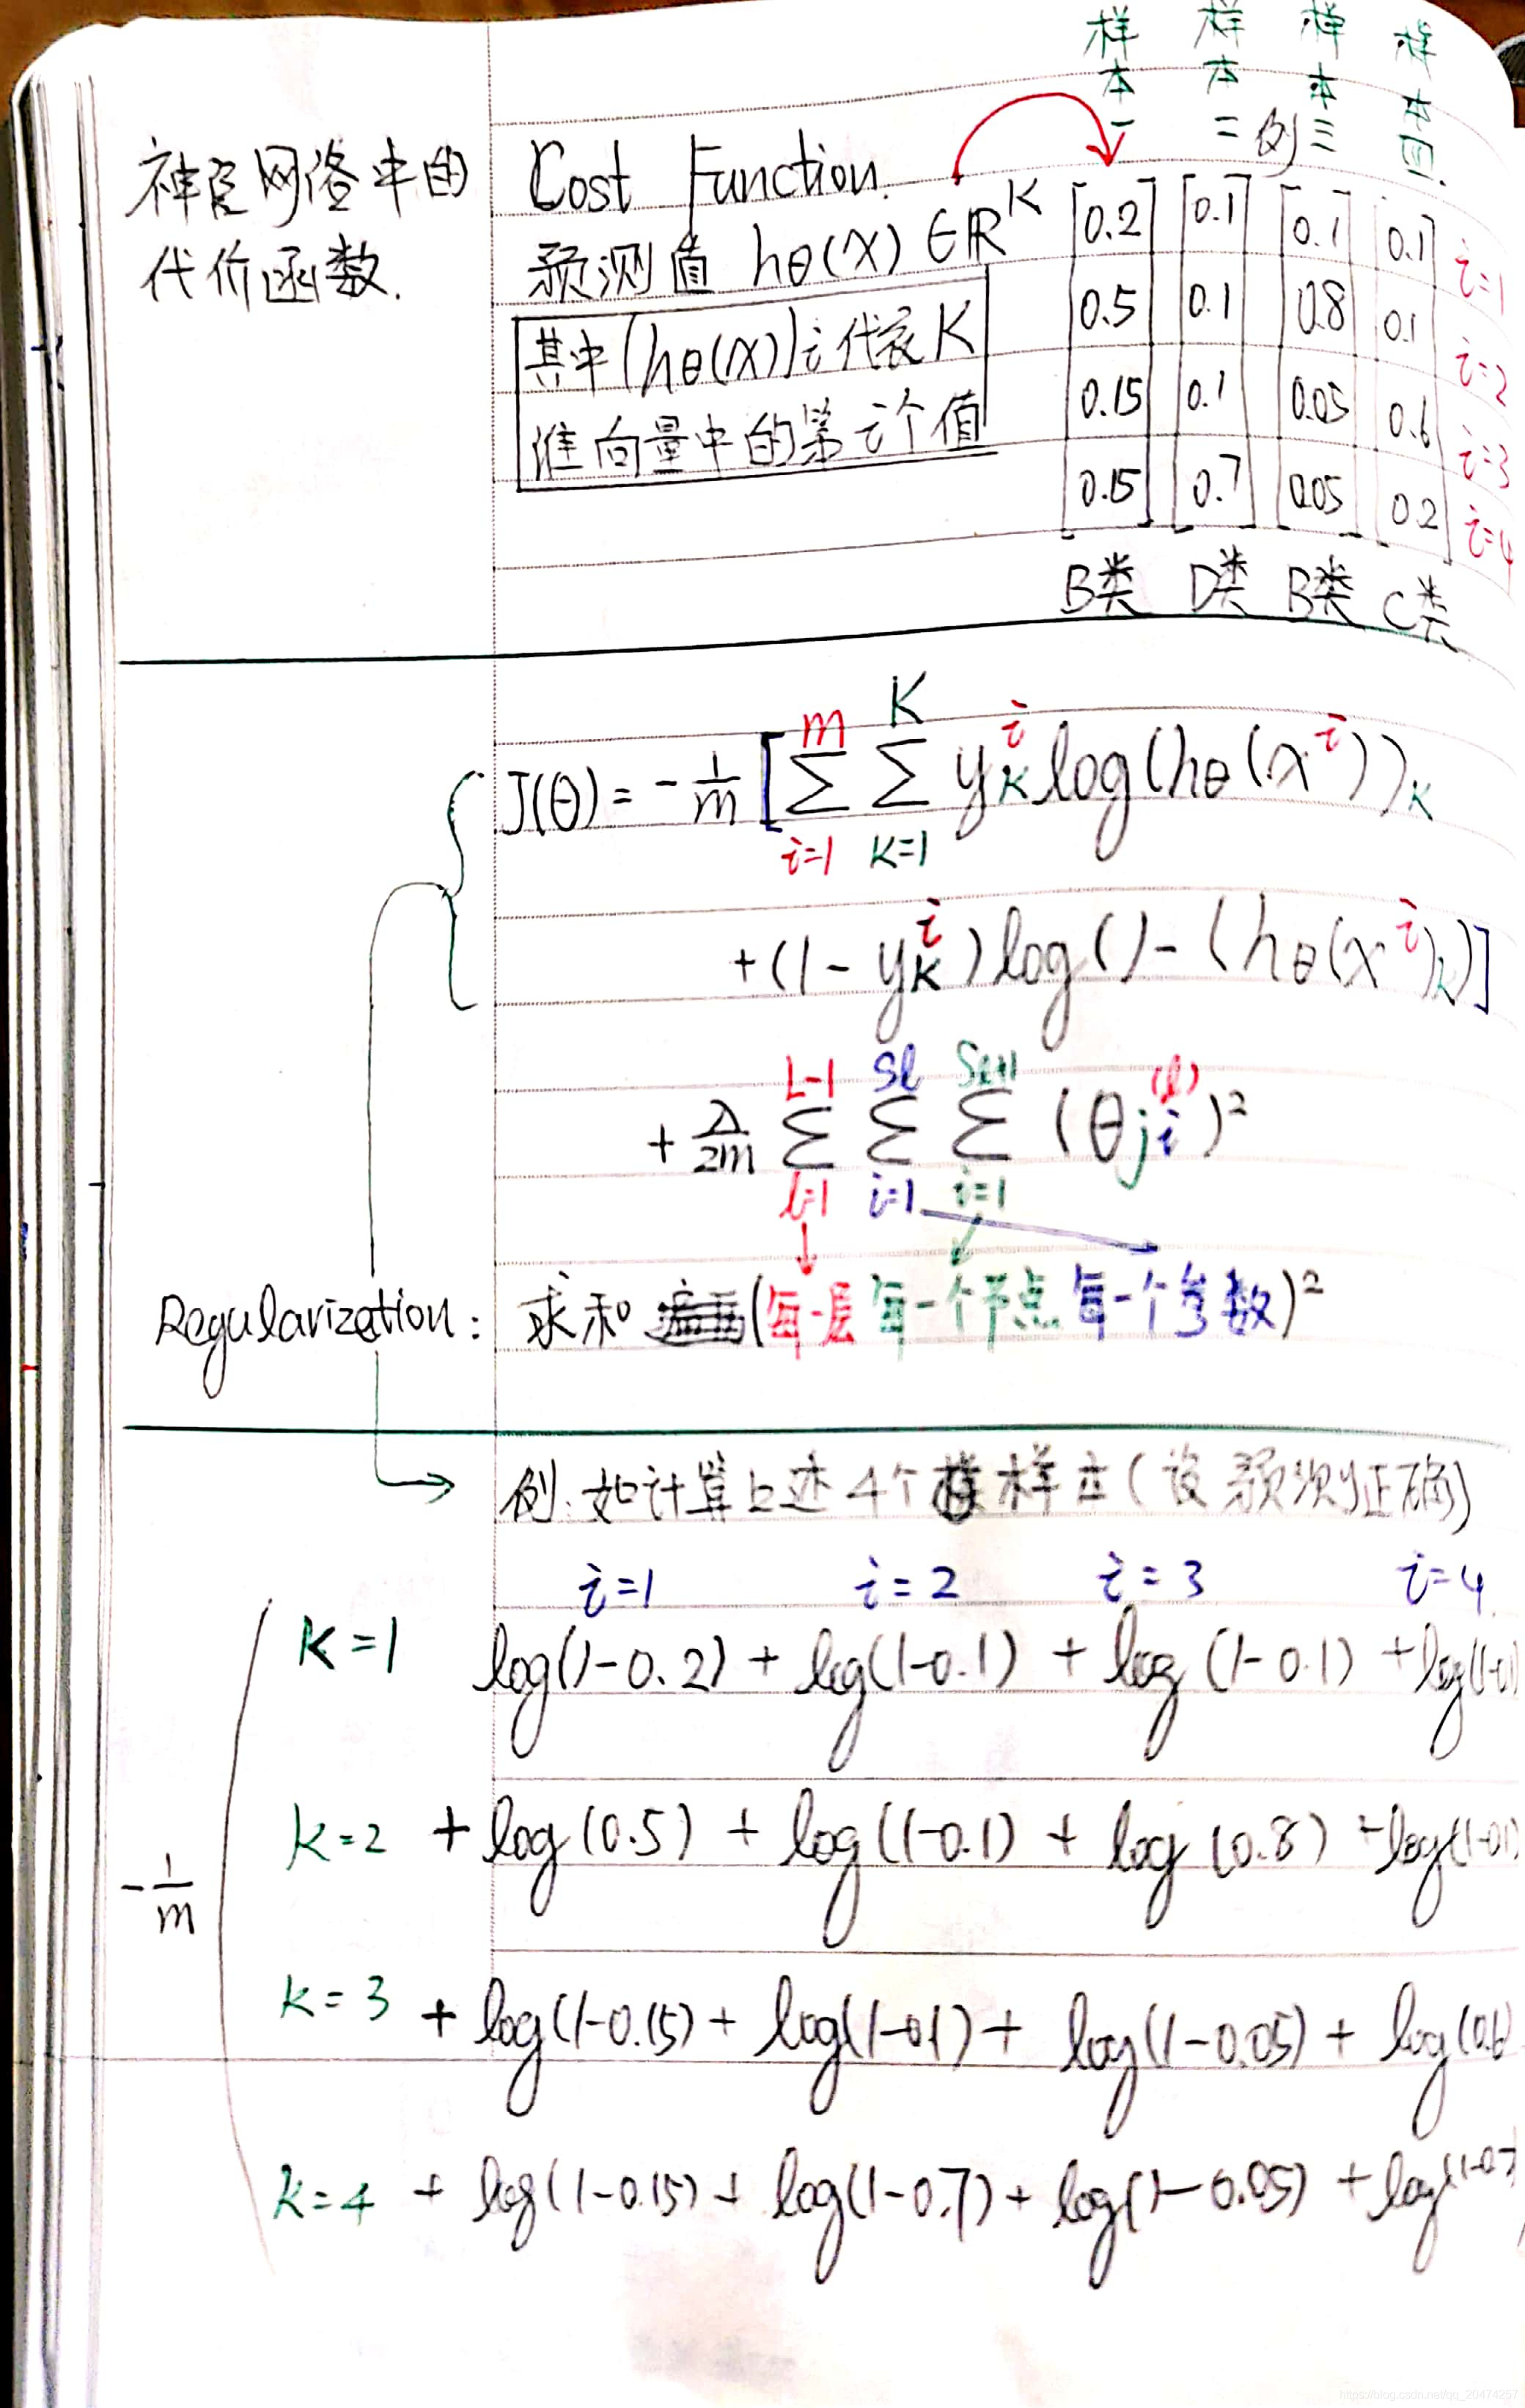 样本一 样本二 样本三 样本四
例
神经网络中的
代价函数.
Cost Function.
预测值 hθ(x) ∈ℝᴷ
其中(hθ(x))i代表K
维向量中的第i个值
[0.2] [0.1] [0.1] [0.1] i=1
0.5 0.1 0.8 0.1 i=2
0.15 0.1 0.05 0.6 i=3
0.15 0.7 0.05 0.2 i=4
B类 D类 B类 C类
J(θ) = -1/m [∑(i=1, m) ∑(k=1, K) y_k^i log(hθ(x^i))_k
+(1-y_k^i)log(1-(hθ(x^i)_k)]
+ λ/2m ∑(l=1, L-1) ∑(i=1, Sl) ∑(i=1, Sl+1) (θji^(l))²
Regularization: 求和(每一层 每一个节点 每一个参数)²
例:如计算上述4个样本(设预测正确)
i=1 i=2 i=3 i=4
K=1 log(1-0.2) + log(1-0.1) + log(1-0.1) +log(1-0.1
K=2 + log(0.5) + log(1-0.1) + log(0.8) +log(1-0.1)
-1/m
K=3 + log(1-0.15) + log(1-0.1) + log(1-0.05) + log(0.6)
K=4 + log(1-0.15) + log(1-0.7) + log(1-0.05) + log(1-0.
https://blog.csdn.net/qq_20474257